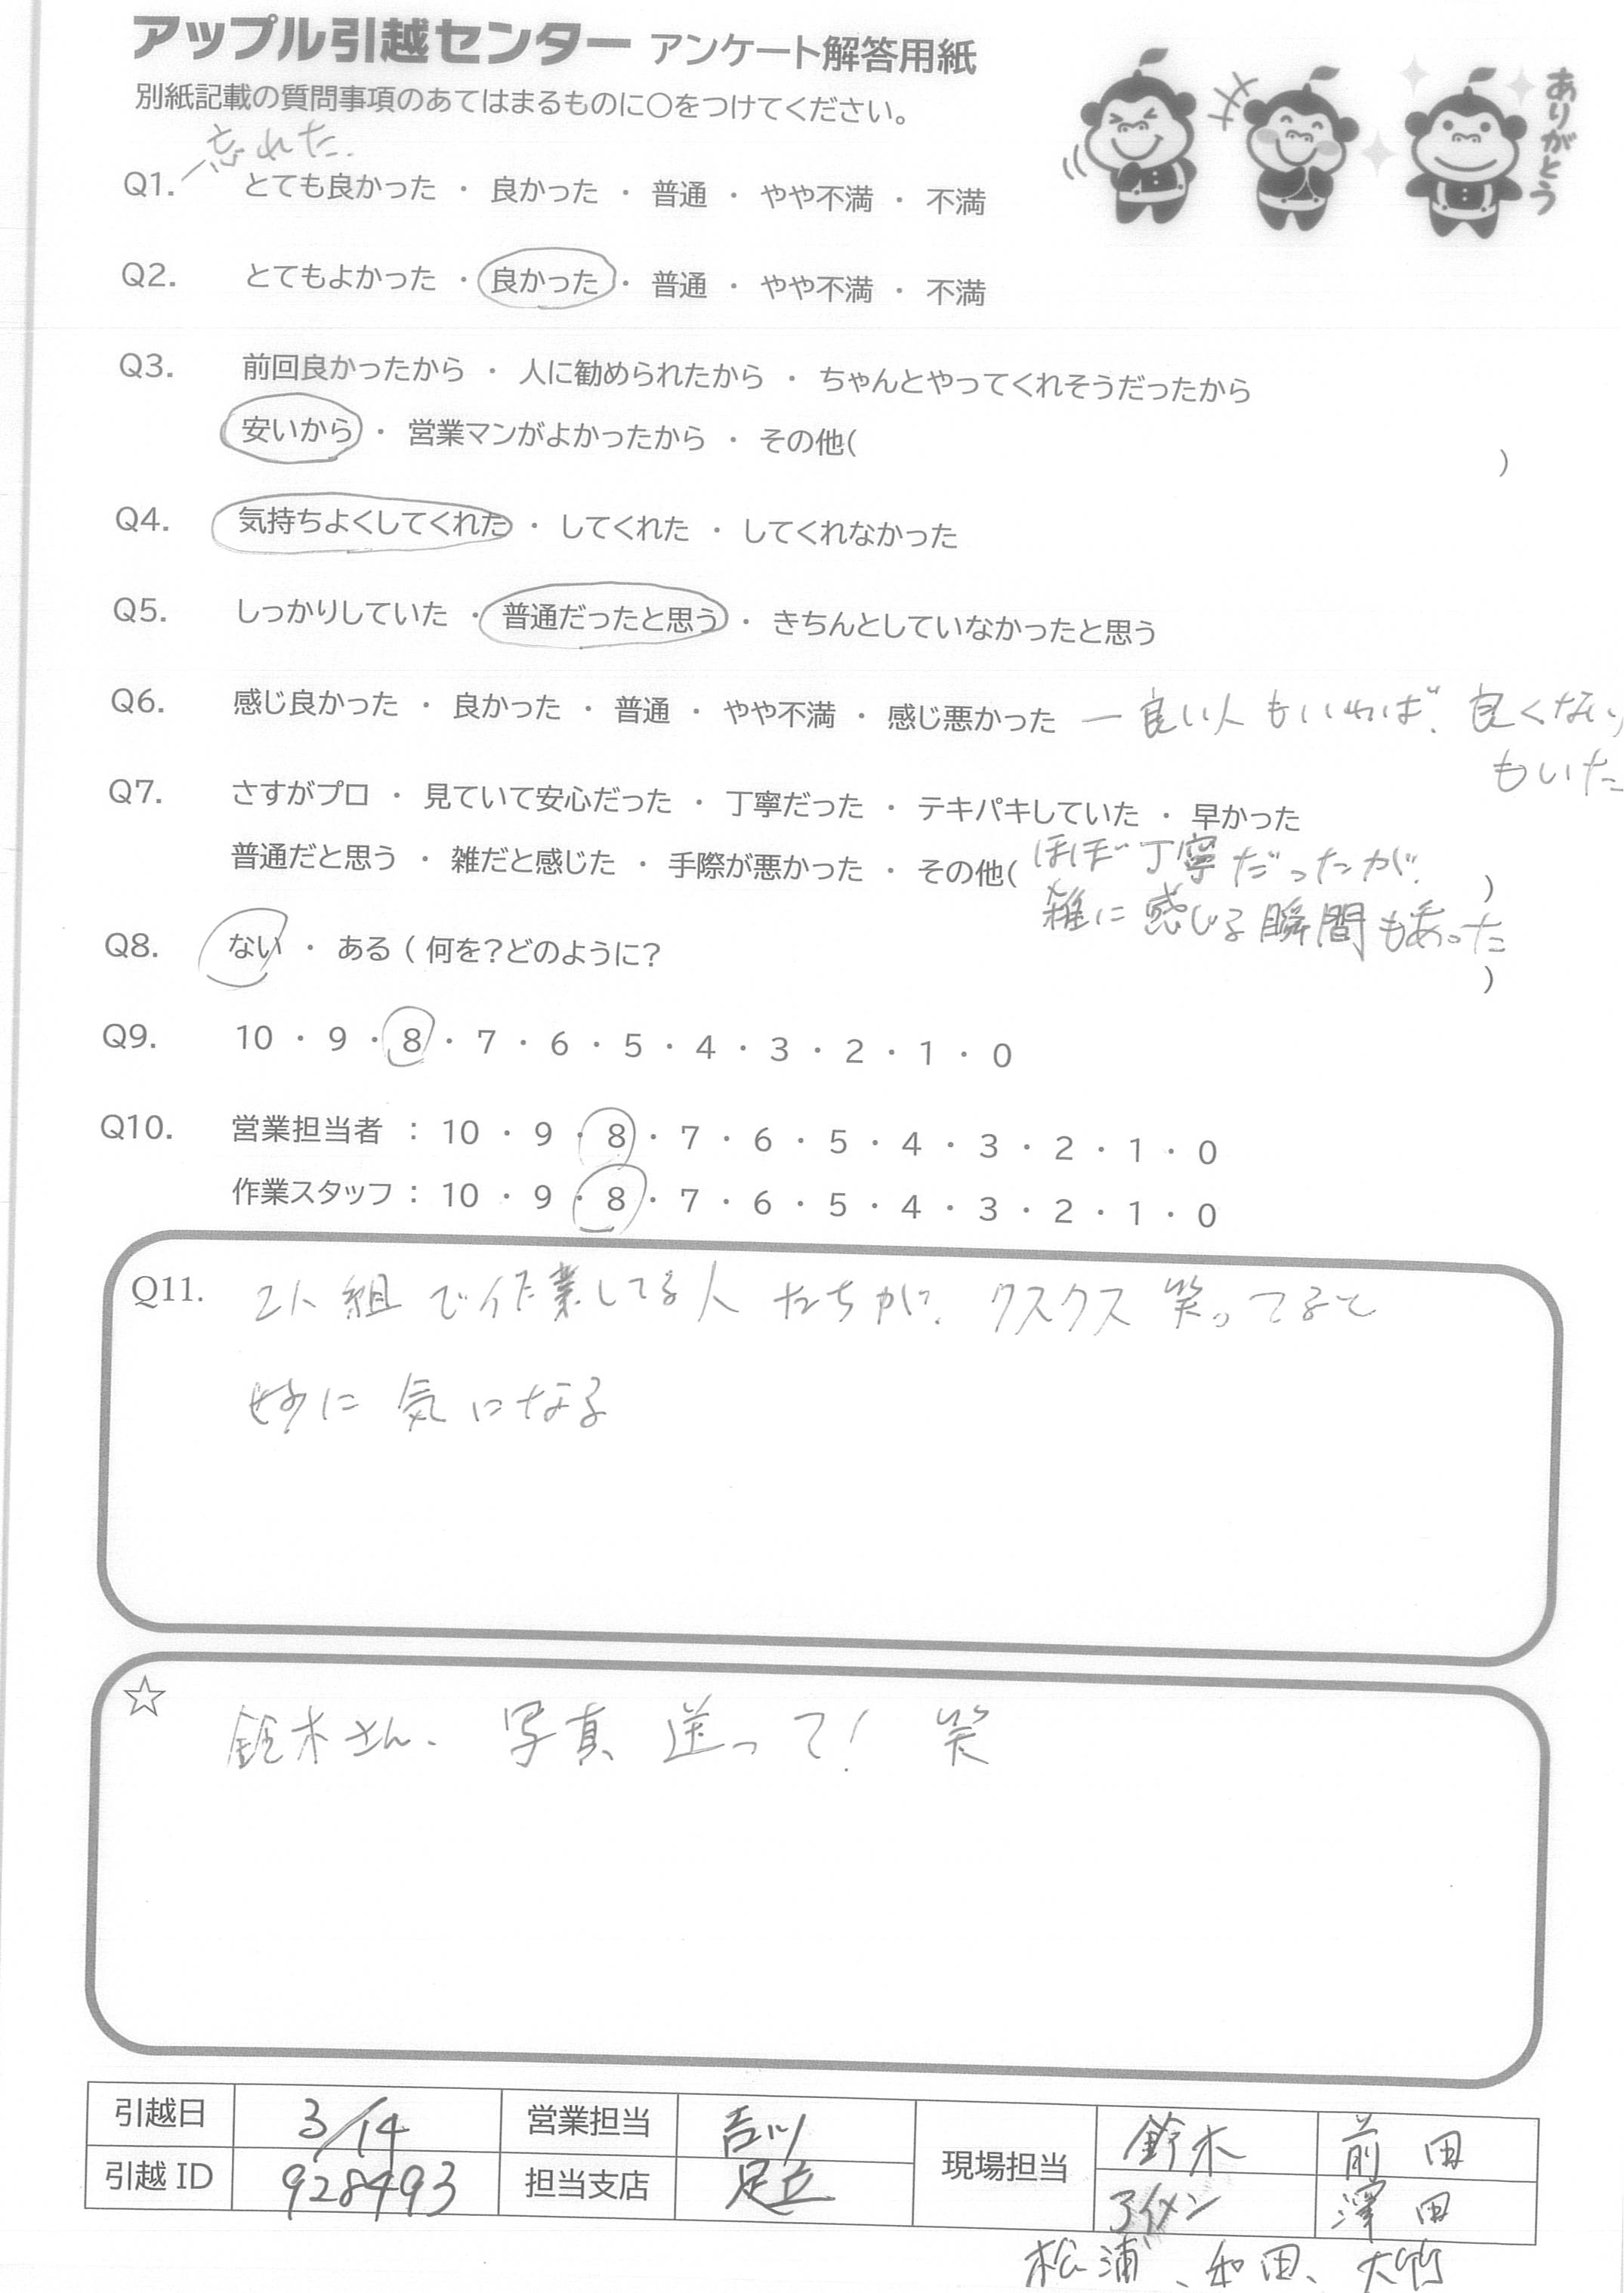 アップル引越センター アンケート解答用紙
別紙記載の質問事項のあてはまるものに○をつけてください。
ありがとう
忘れた.
Q1. とても良かった ・ 良かった ・ 普通 ・ やや不満 ・ 不満
Q2. とてもよかった ・ 良かった ・ 普通 ・ やや不満 ・ 不満
Q3. 前回良かったから ・ 人に勧められたから ・ ちゃんとやってくれそうだったから
安いから ・ 営業マンがよかったから ・ その他( )
Q4. 気持ちよくしてくれた ・ してくれた ・ してくれなかった
Q5. しっかりしていた ・ 普通だったと思う ・ きちんとしていなかったと思う
Q6. 感じ良かった ・ 良かった ・ 普通 ・ やや不満 ・ 感じ悪かった ー 良い人もいれば、良くない
もいた
Q7. さすがプロ ・ 見ていて安心だった ・ 丁寧だった ・ テキパキしていた ・ 早かった
普通だと思う ・ 雑だと感じた ・ 手際が悪かった ・ その他( ほぼ丁寧だったが、 )
雑に感じる瞬間もあった
Q8. ない ・ ある ( 何を?どのように? )
Q9. 10 ・ 9 ・ 8 ・ 7 ・ 6 ・ 5 ・ 4 ・ 3 ・ 2 ・ 1 ・ 0
Q10. 営業担当者 : 10 ・ 9 ・ 8 ・ 7 ・ 6 ・ 5 ・ 4 ・ 3 ・ 2 ・ 1 ・ 0
作業スタッフ : 10 ・ 9 ・ 8 ・ 7 ・ 6 ・ 5 ・ 4 ・ 3 ・ 2 ・ 1 ・ 0
Q11. 2人組で作業してる人たちが、クスクス笑ってると
妙に気になる
☆ 鈴木さん、写真送って! 笑
引越日 3/14 営業担当 吉川 現場担当 鈴木 前田
引越ID 928493 担当支店 足立 アイメン 澤田
松浦、和田、大竹